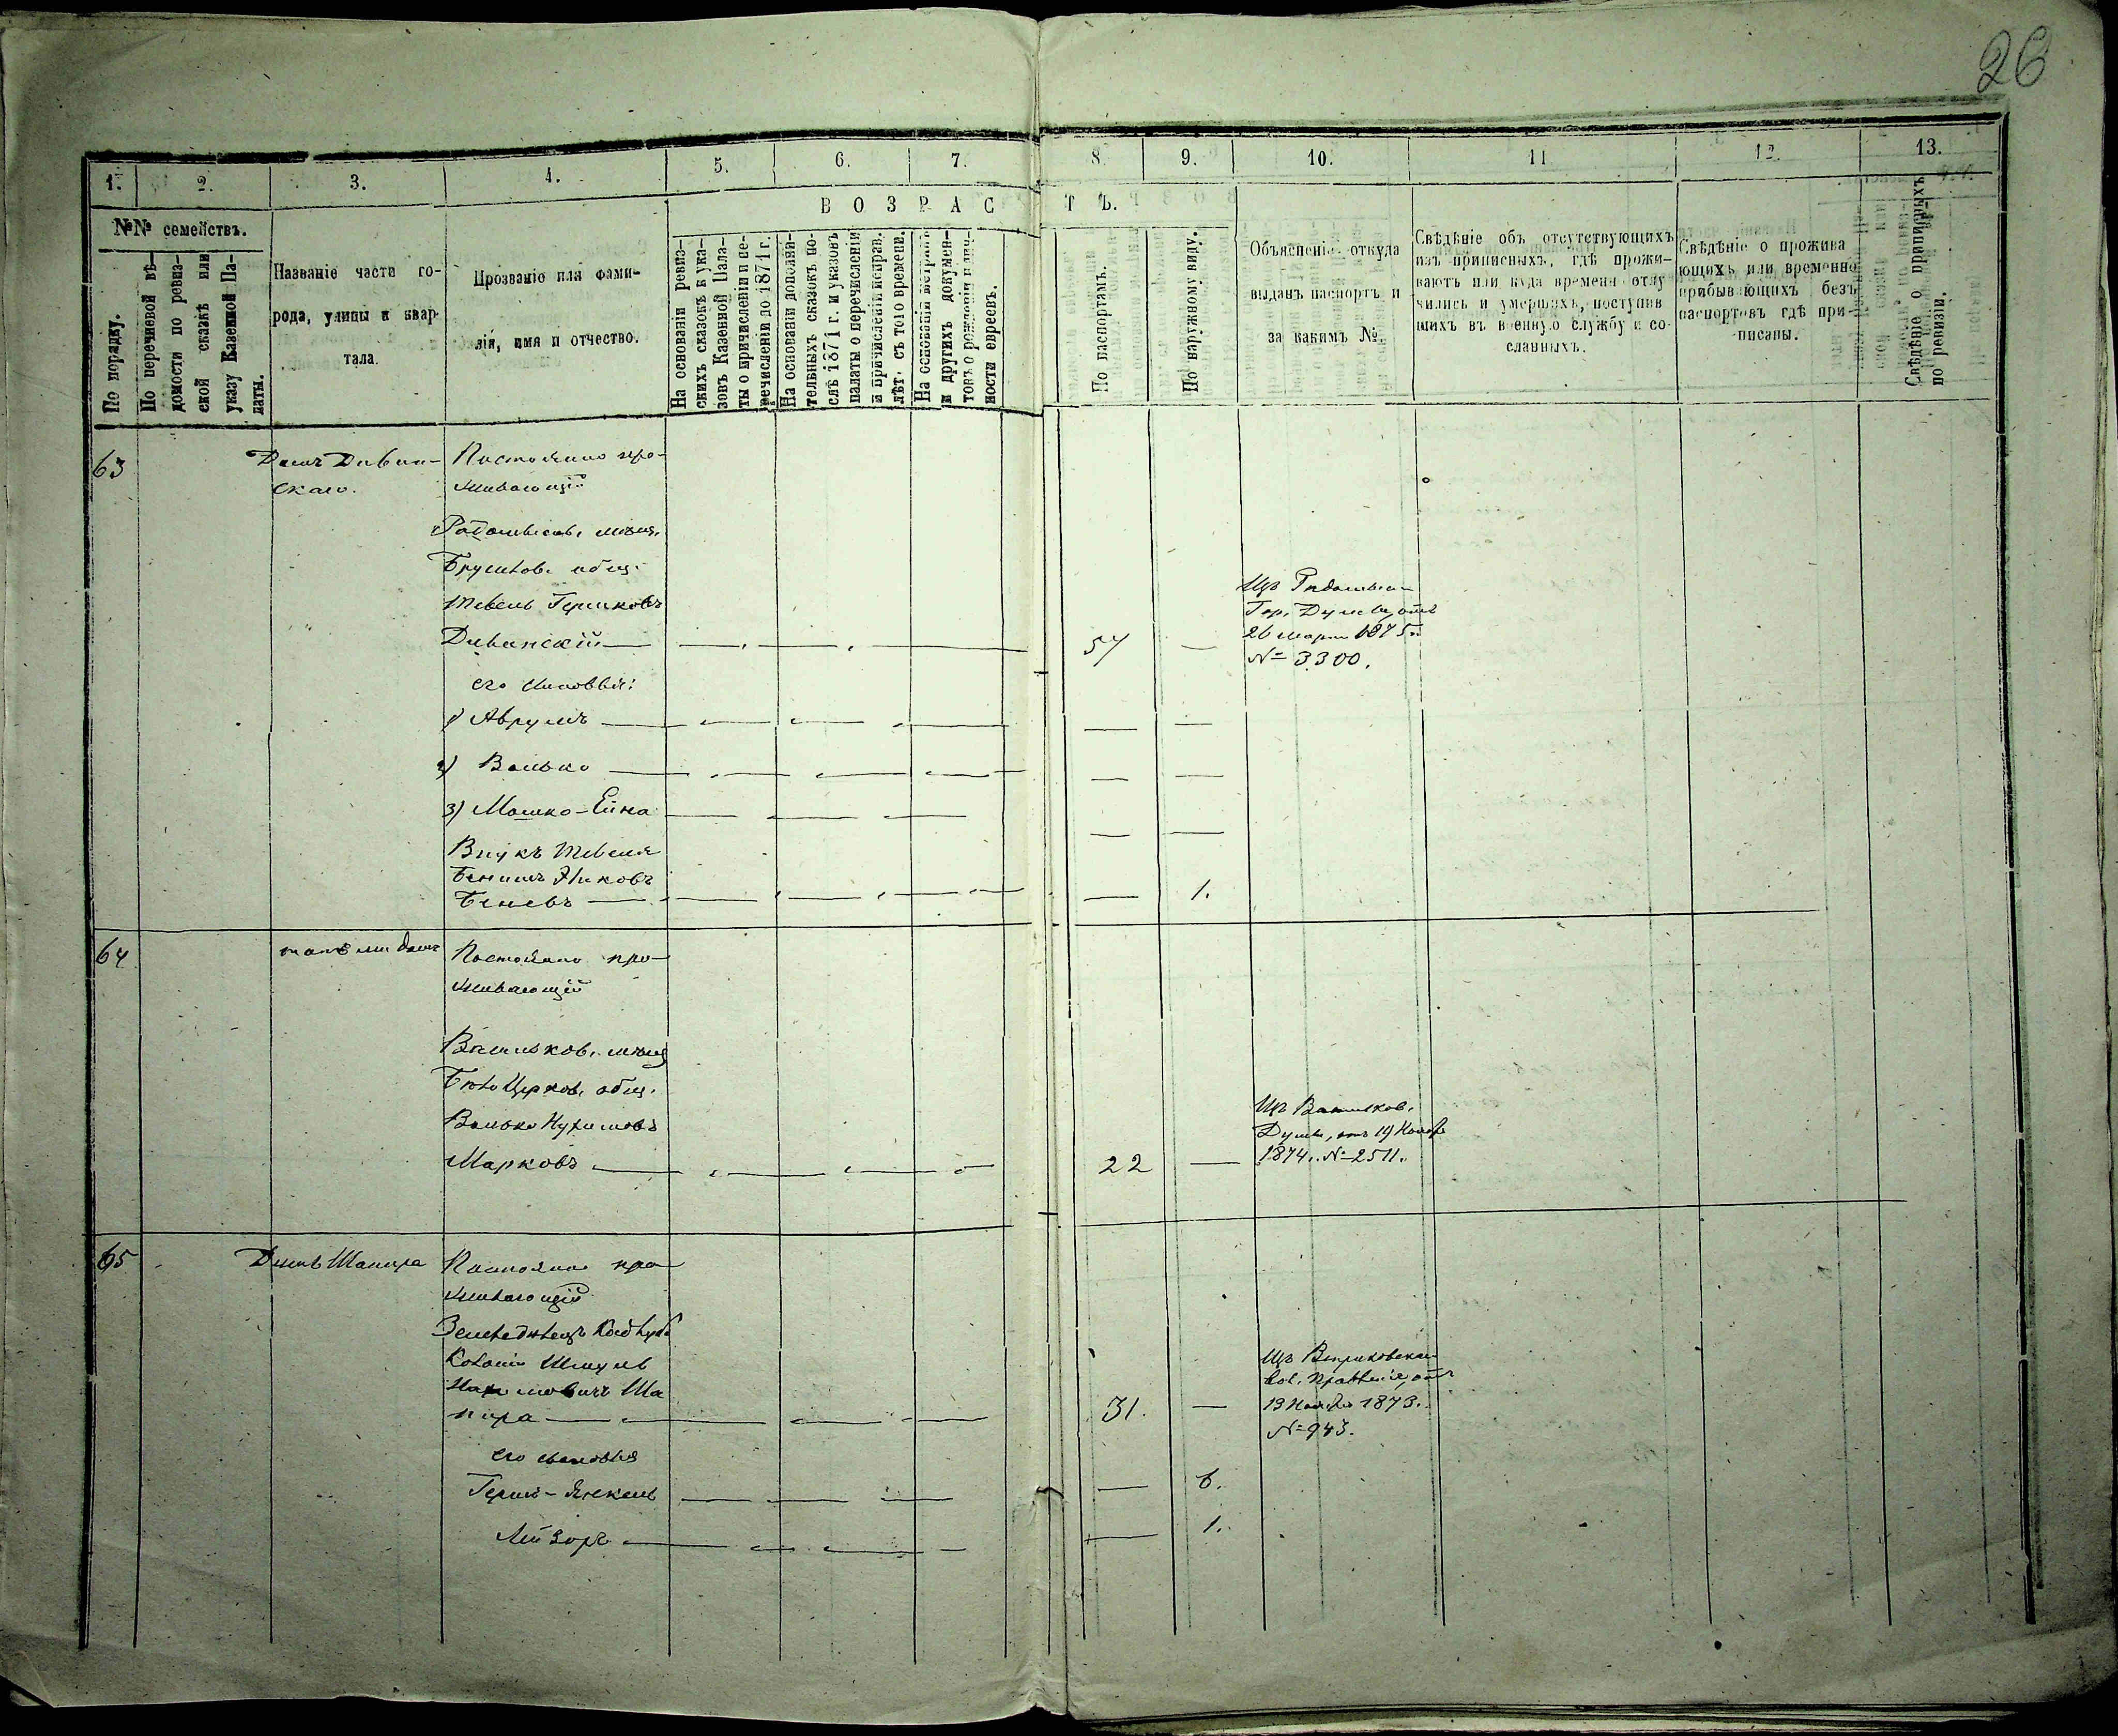 26
1. 2. 3. 4. 5. 6. 7. 8. 9. 10. 11 12. 13.
№№ семействъ.
По порядку.
По перечневой вѣ-
домости по ревиз-
ской сказкѣ или
указу Казенной Па-
латы.
Названіе части го-
рода, улицы и квар-
тала.
Прозваніе или фами-
лія, имя и отчество.
ВОЗРАСТЪ.
На основаніи ревиз-
скихъ сказокъ и ука-
зовъ Казенной Пала-
ты о причисленіи и пе-
речисленіи до 1871 г.
На основаніи дополни-
тельныхъ сказокъ по-
слѣ 1871 г. и указовъ
палаты о перечисленіи
и причисленіи исправ.
лѣт. съ того времени.
На основаніи метрикъ
и другихъ докумен-
товъ о рожденіи и лич-
ности евреевъ.
По паспортамъ.
По наружному виду.
Объясненіе откуда
выданъ паспортъ и
за какимъ №.
Свѣдѣніе объ отсутствующихъ
изъ приписныхъ, гдѣ прожи-
ваютъ или куда времени отлу
чились и умершихъ, поступив
щихъ въ военную службу и со-
сланныхъ.
Свѣдѣніе о прожива
ющихъ или временно
прибывающихъ безъ
паспортовъ гдѣ при-
писаны.
Свѣдѣніе о приписныхъ
по ревизіи.
63 Домъ Диван- Постоянно про-
скаго. живающій
Радомысль. мѣщ.
Брусилов. общ.
Тевель Гершковъ
Диванскій 57 —
Изъ Радомысл
Гор. Думы, отъ
26 Марта 1875 г.
№ 3300.
его сыновья:
1) Аврумъ — —
2) Волько — —
3) Мошко-Ейна — —
Внукъ Тевеля
Беневъ — 1.
64 тотъ же домъ Постоянно про-
живающій
Васильков. мѣщ
Бѣлоцерков. общ.
Волько Нухимовъ
Марковъ 22 —
Изъ Васильков.
Думы, отъ 19 Ноября
1874. № 2511.
65 Домъ Шапира Постоянно про
живающій
Земледѣлецъ
Колоніи Шмуль
Шa
пира 31. —
Правленія, отъ
13 Ноября 1873.
№ 943.
его сыновья
Гершъ-Янкель — 6.
Лейзоръ — 1.